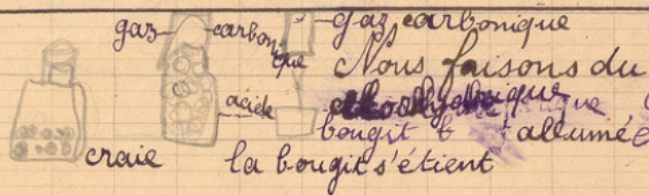 gaz carbonique
gaz carbonique
Nous faisons du
acide
bougit allumée
craie
la bougit s'étient